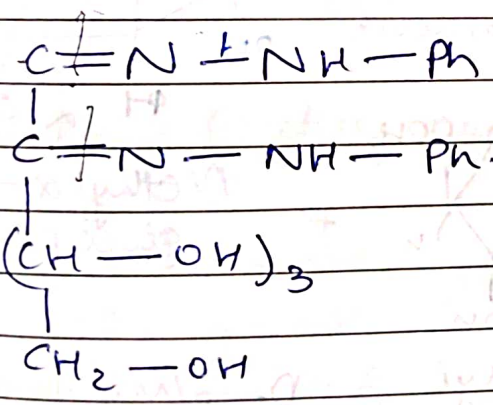 C=N-NH-Ph
C=N-NH-Ph.
(CH-OH)3
CH2-OH